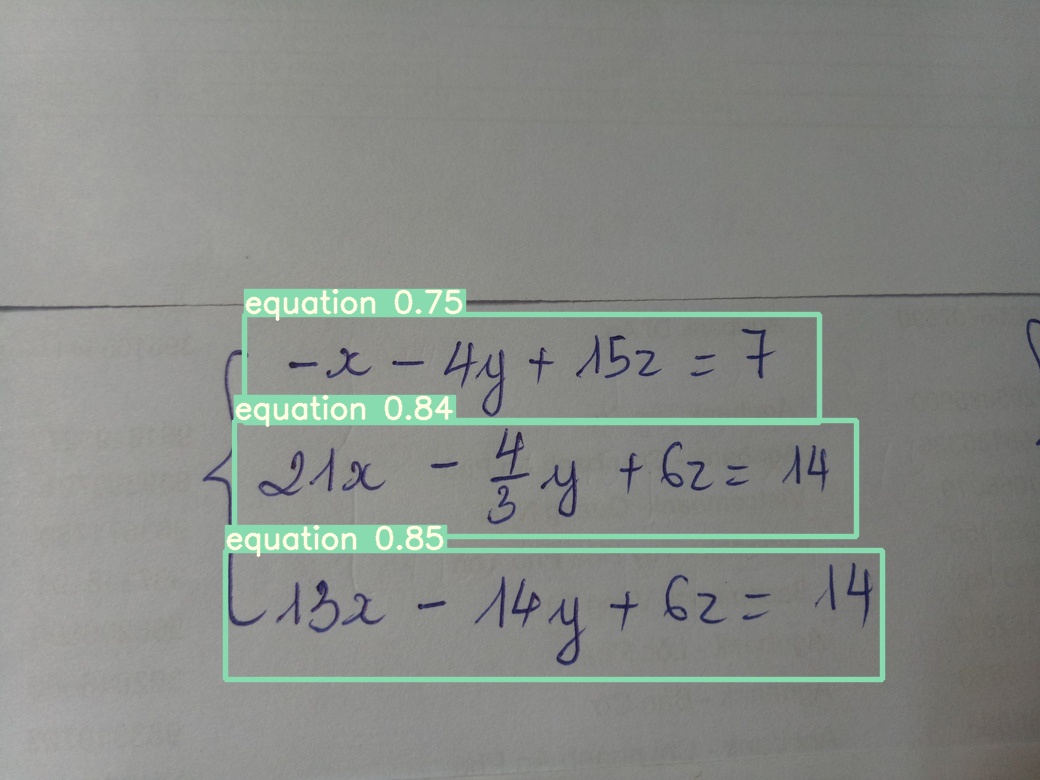 equation 0.75
-x - 4y + 15z = 7
equation 0.84
21x - 4/3 y + 6z = 14
equation 0.85
13x - 14y + 6z = 14